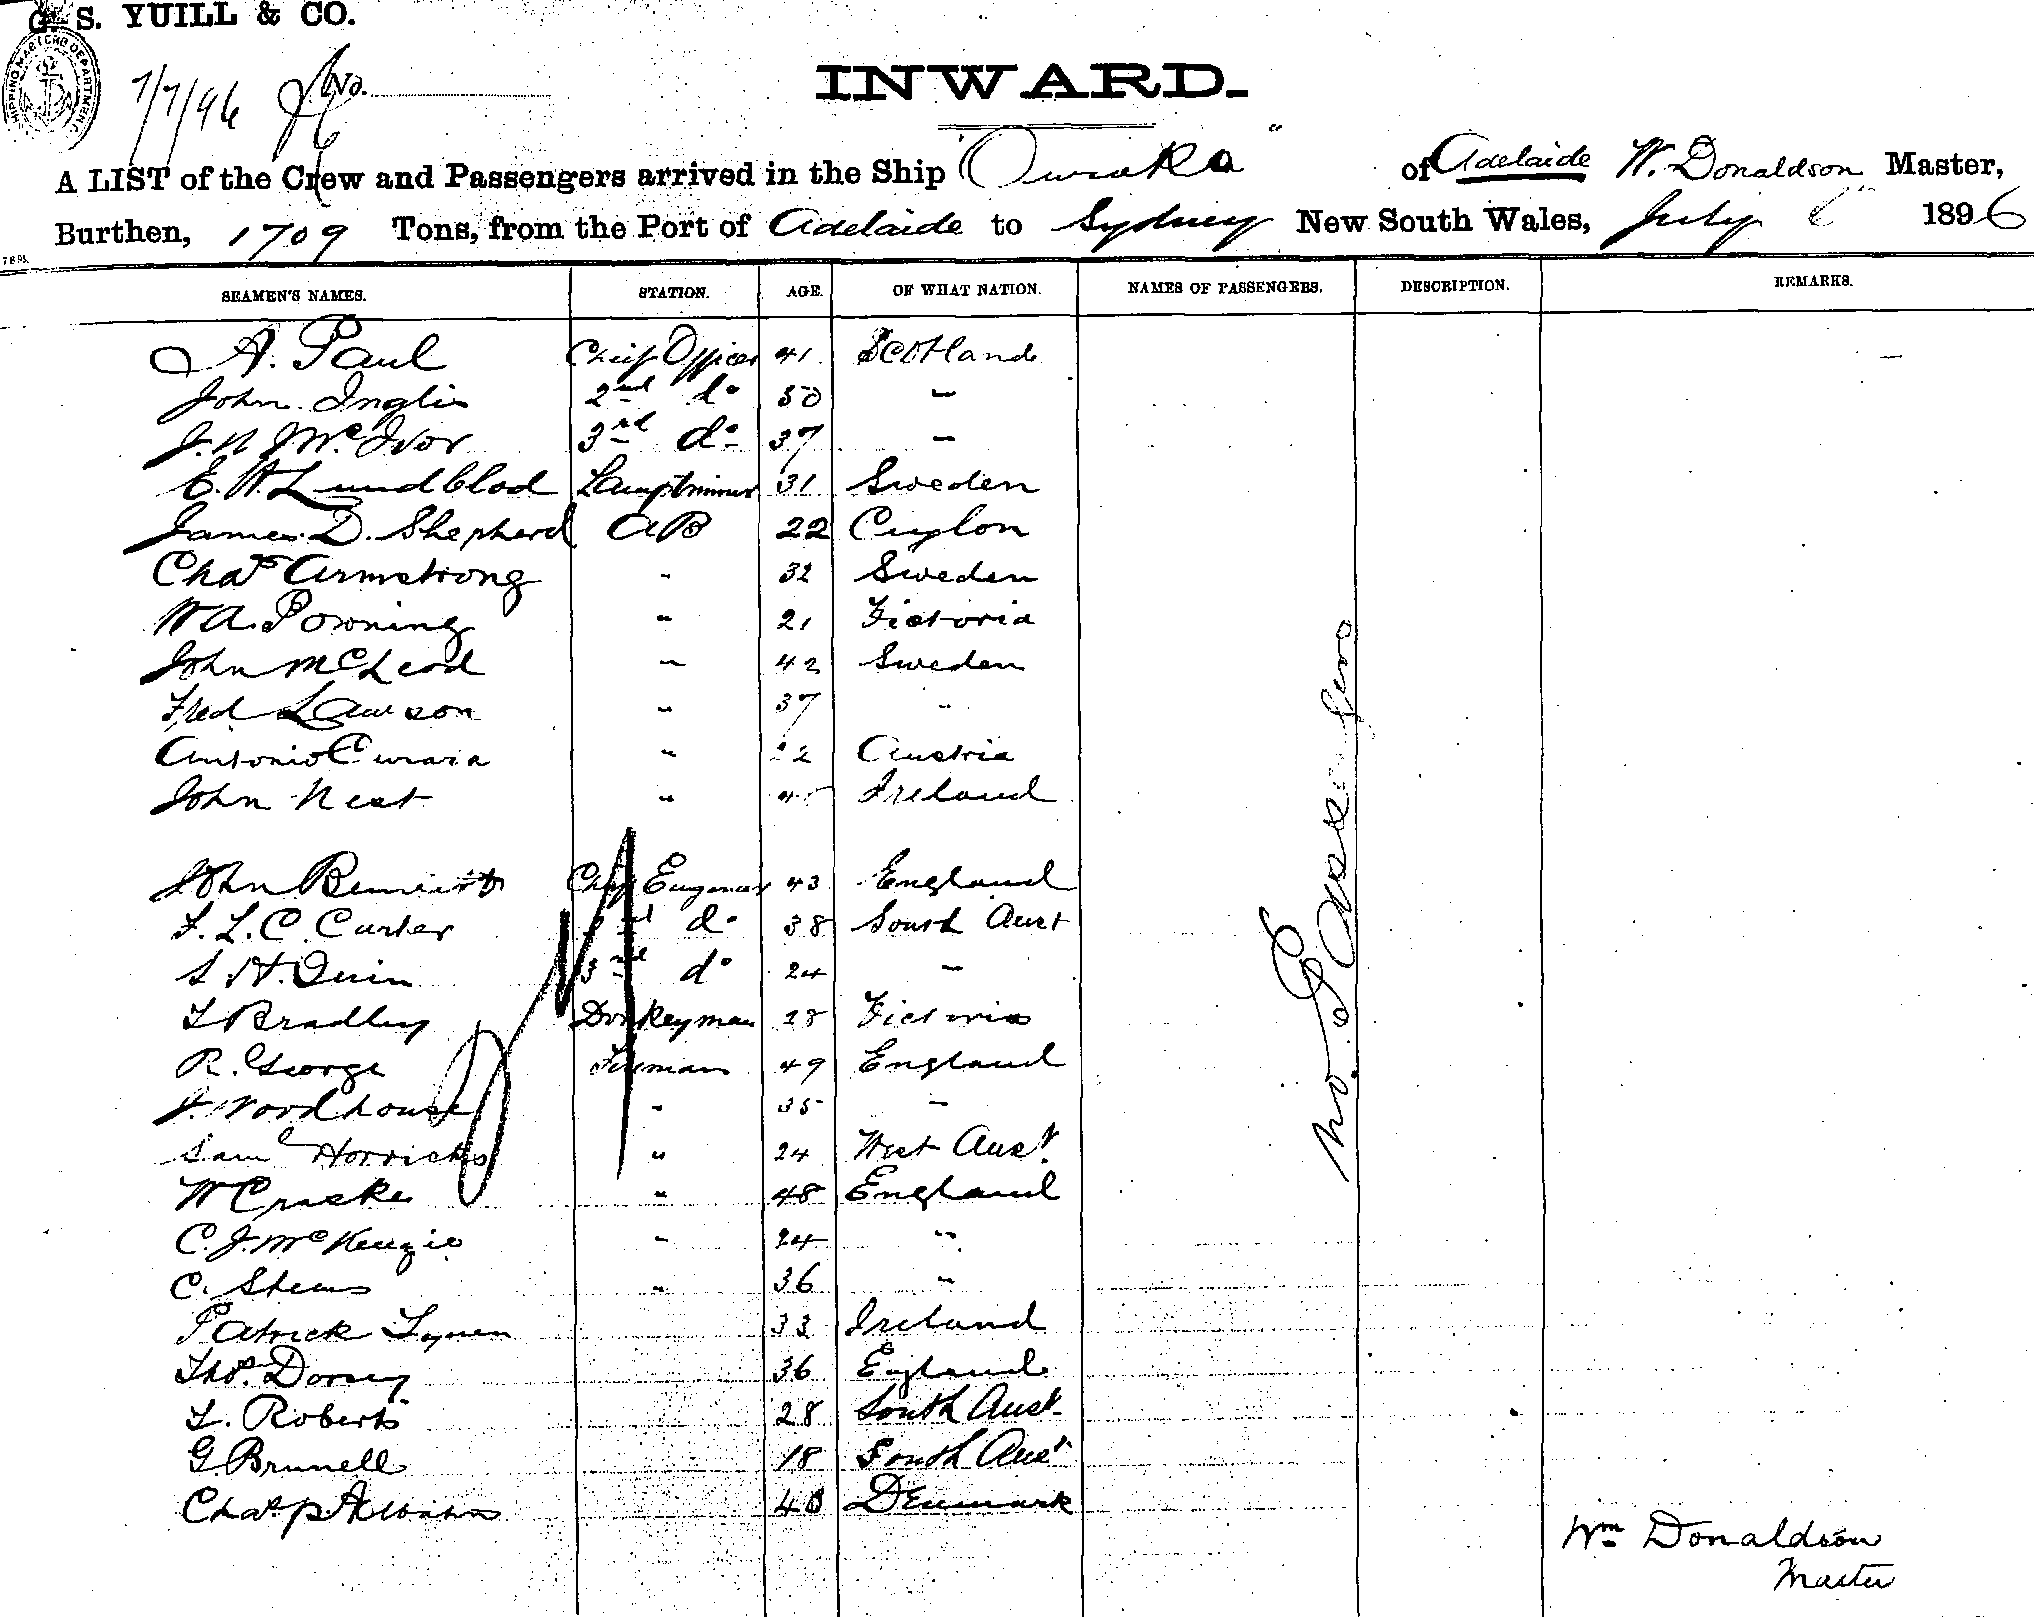 G. S. YUILL & CO.
SHIPPING MASTERS DEPARTMENT
7/7/96 No.
INWARD.
A LIST of the Crew and Passengers arrived in the Ship " " of Adelaide W. Donaldson Master,
Burthen, 1709 Tons, from the Port of Adelaide to Sydney New South Wales, July 6 1896
SEAMEN'S NAMES. STATION. AGE. OF WHAT NATION. NAMES OF PASSENGERS. DESCRIPTION. REMARKS.
A. Paul Chief Officer 41 Scotland
John Inglis 2nd do 50 "
J. N. McIvor 3rd do 37 "
E. A. Lundblad Lamptrimmer 31 Sweden
James D. Shepherd AB 22 Ceylon
Chas Armstrong " 32 Sweden
W A. Powning " 21 Victoria
John McLeod " 42 Sweden
Fred Lawson " 37 "
Antonio " 22 Austria
John Nest " Ireland
John Chief Engineer 43 England
F. L. C. Carter 2nd do 38 South Aust
S H. Quin 3rd do 24 "
T Bradley Donkeyman 28 Victoria
R. George Fireman 49 England
J. Woodhouse " 35 "
Sam Horricks " 24 West Aust.
W Craske " 48 England
C. J. McKenzie " 24 "
C. " 36 "
Patrick 33 Ireland
Thos. Dorsey 36 England
T. Roberts 28 South Aust
G. Brunell 18 South Aust
Chas P 40 Denmark
No Passengers
Wm Donaldson
Master